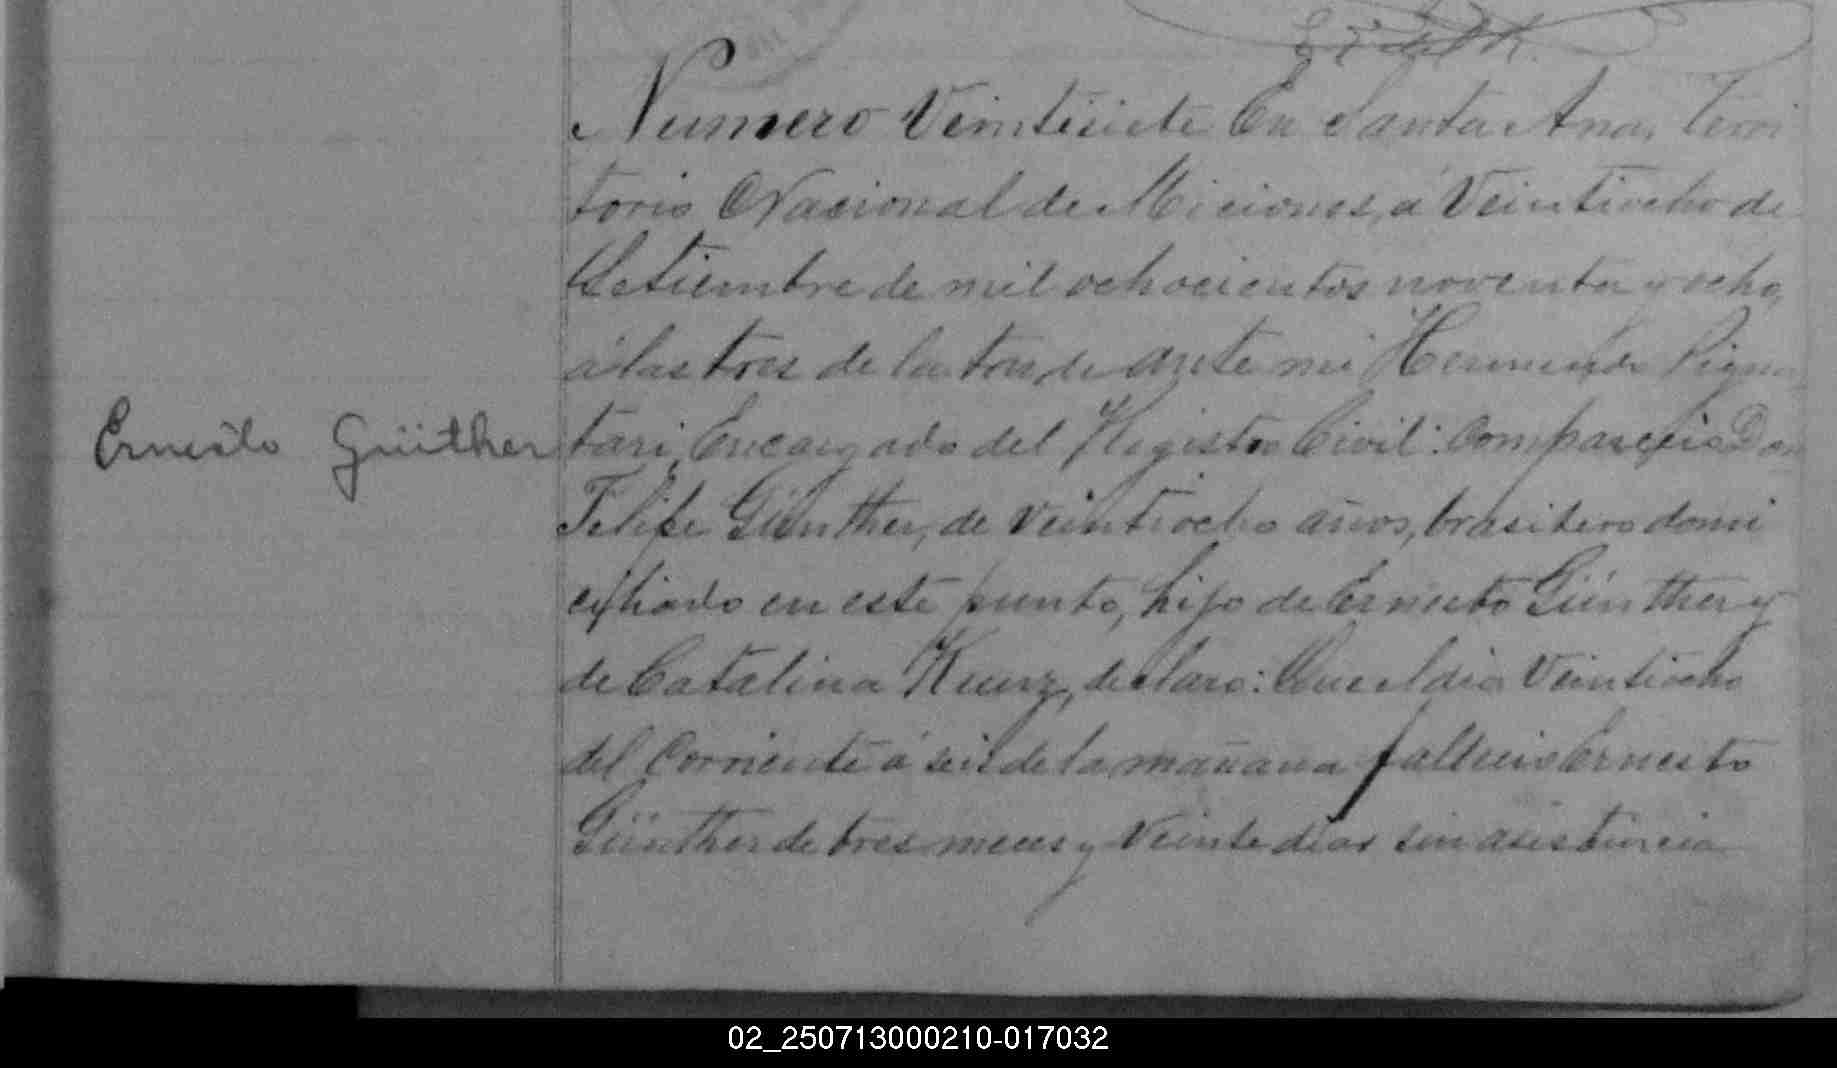 Numero Veintisiete En Santa Ana, Terri
torio Nacional de Miciones, á Veintiocho de
Setiembre de mil ochocientos noventa y ocho,
á las tres de la tarde ante mi Hermenejdo Pigna
Ernesto Güither
tari, Encargado del Registro Civil: compareció Don
Felipe Günther, de veintiocho años, brasilero domi
ciliado en este punto, hijo de Ernesto Günther y
de Catalina Kunz, declaro: Que el dia Veintiocho
del Corriente á seis de la mañana fallecio Ernesto
Günther de tres meses y Veinte dias sin asistencia
02_250713000210-017032